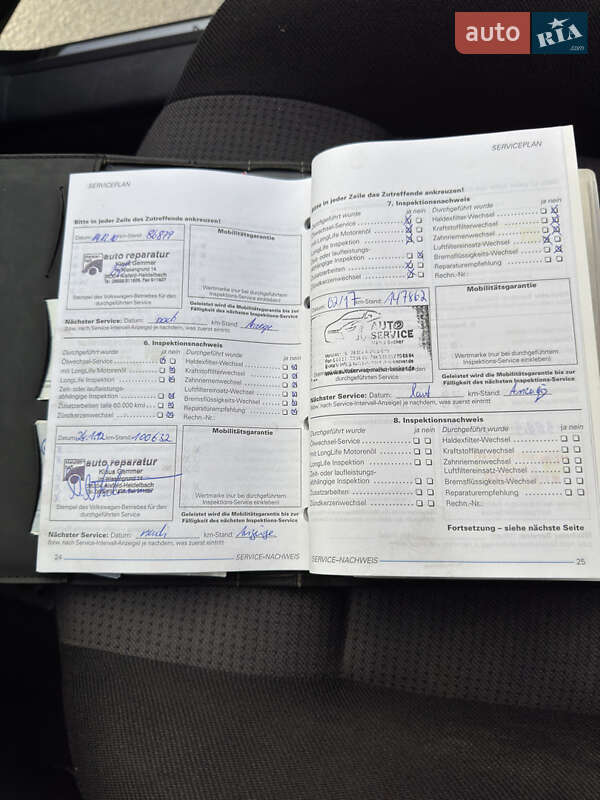 auto RIA .com
SERVICEPLAN
Bitte in jeder Zeile das Zutreffende ankreuzen!
Datum: km-Stand: 86879
Mobilitätsgarantie
auto reparatur
Klaus Gemmer
Im Wiesengrund 14
Stempel des Volkswagen-Betriebs für den
durchgeführten Service
Wertmarke (nur bei durchgeführtem
Inspektions-Service einkleben)
Geleistet wird die Mobilitätsgarantie bis zur
Fälligkeit des nächsten Inspektions-Service
Nächster Service: Datum: nach km-Stand: Anzeige
(bzw. nach Service-Intervall-Anzeige) je nachdem, was zuerst eintritt
6. Inspektionsnachweis
Durchgeführt wurde ja nein
Ölwechsel-Service
mit LongLife Motorenöl
LongLife Inspektion
Zeit- oder laufleistungs-
abhängige Inspektion
Zusatzarbeiten (alle 60.000 km)
Zündkerzenwechsel
Durchgeführt wurde ja nein
Haldexfilter-Wechsel
Kraftstoffilterwechsel
Zahnriemenwechsel
Luftfiltereinsatz-Wechsel
Bremsflüssigkeits-Wechsel
Reparaturempfehlung
Rechn.-Nr.:
Datum: km-Stand: 100632
Mobilitätsgarantie
auto reparatur
Klaus Gemmer
Im Wiesengrund 14
Stempel des Volkswagen-Betriebs für den
durchgeführten Service
Wertmarke (nur bei durchgeführtem
Inspektions-Service einkleben)
Geleistet wird die Mobilitätsgarantie bis zur
Fälligkeit des nächsten Inspektions-Service
Nächster Service: Datum: nach km-Stand: Anzeige
(bzw. nach Service-Intervall-Anzeige) je nachdem, was zuerst eintritt
24
SERVICE–NACHWEIS
SERVICEPLAN
Bitte in jeder Zeile das Zutreffende ankreuzen!
7. Inspektionsnachweis
Durchgeführt wurde ja nein
Ölwechsel-Service
mit LongLife Motorenöl
LongLife Inspektion
Zeit- oder laufleistungs-
abhängige Inspektion
Zusatzarbeiten
Zündkerzenwechsel
Durchgeführt wurde ja nein
Haldexfilter-Wechsel
Kraftstoffilterwechsel
Zahnriemenwechsel
Luftfiltereinsatz-Wechsel
Bremsflüssigkeits-Wechsel
Reparaturempfehlung
Rechn.-Nr.:
Datum: 02/17 km-Stand: 147862
Mobilitätsgarantie
AUTO
SERVICE
durchgeführten Service
Wertmarke (nur bei durchgeführtem
Inspektions-Service einkleben)
Geleistet wird die Mobilitätsgarantie bis zur
Fälligkeit des nächsten Inspektions-Service
Nächster Service: Datum: km-Stand:
(bzw. nach Service-Intervall-Anzeige) je nachdem, was zuerst eintritt
8. Inspektionsnachweis
Durchgeführt wurde ja nein
Ölwechsel-Service
mit LongLife Motorenöl
LongLife Inspektion
Zeit- oder laufleistungs-
abhängige Inspektion
Zusatzarbeiten
Zündkerzenwechsel
Durchgeführt wurde ja nein
Haldexfilter-Wechsel
Kraftstoffilterwechsel
Zahnriemenwechsel
Luftfiltereinsatz-Wechsel
Bremsflüssigkeits-Wechsel
Reparaturempfehlung
Rechn.-Nr.:
Fortsetzung – siehe nächste Seite
SERVICE–NACHWEIS
25